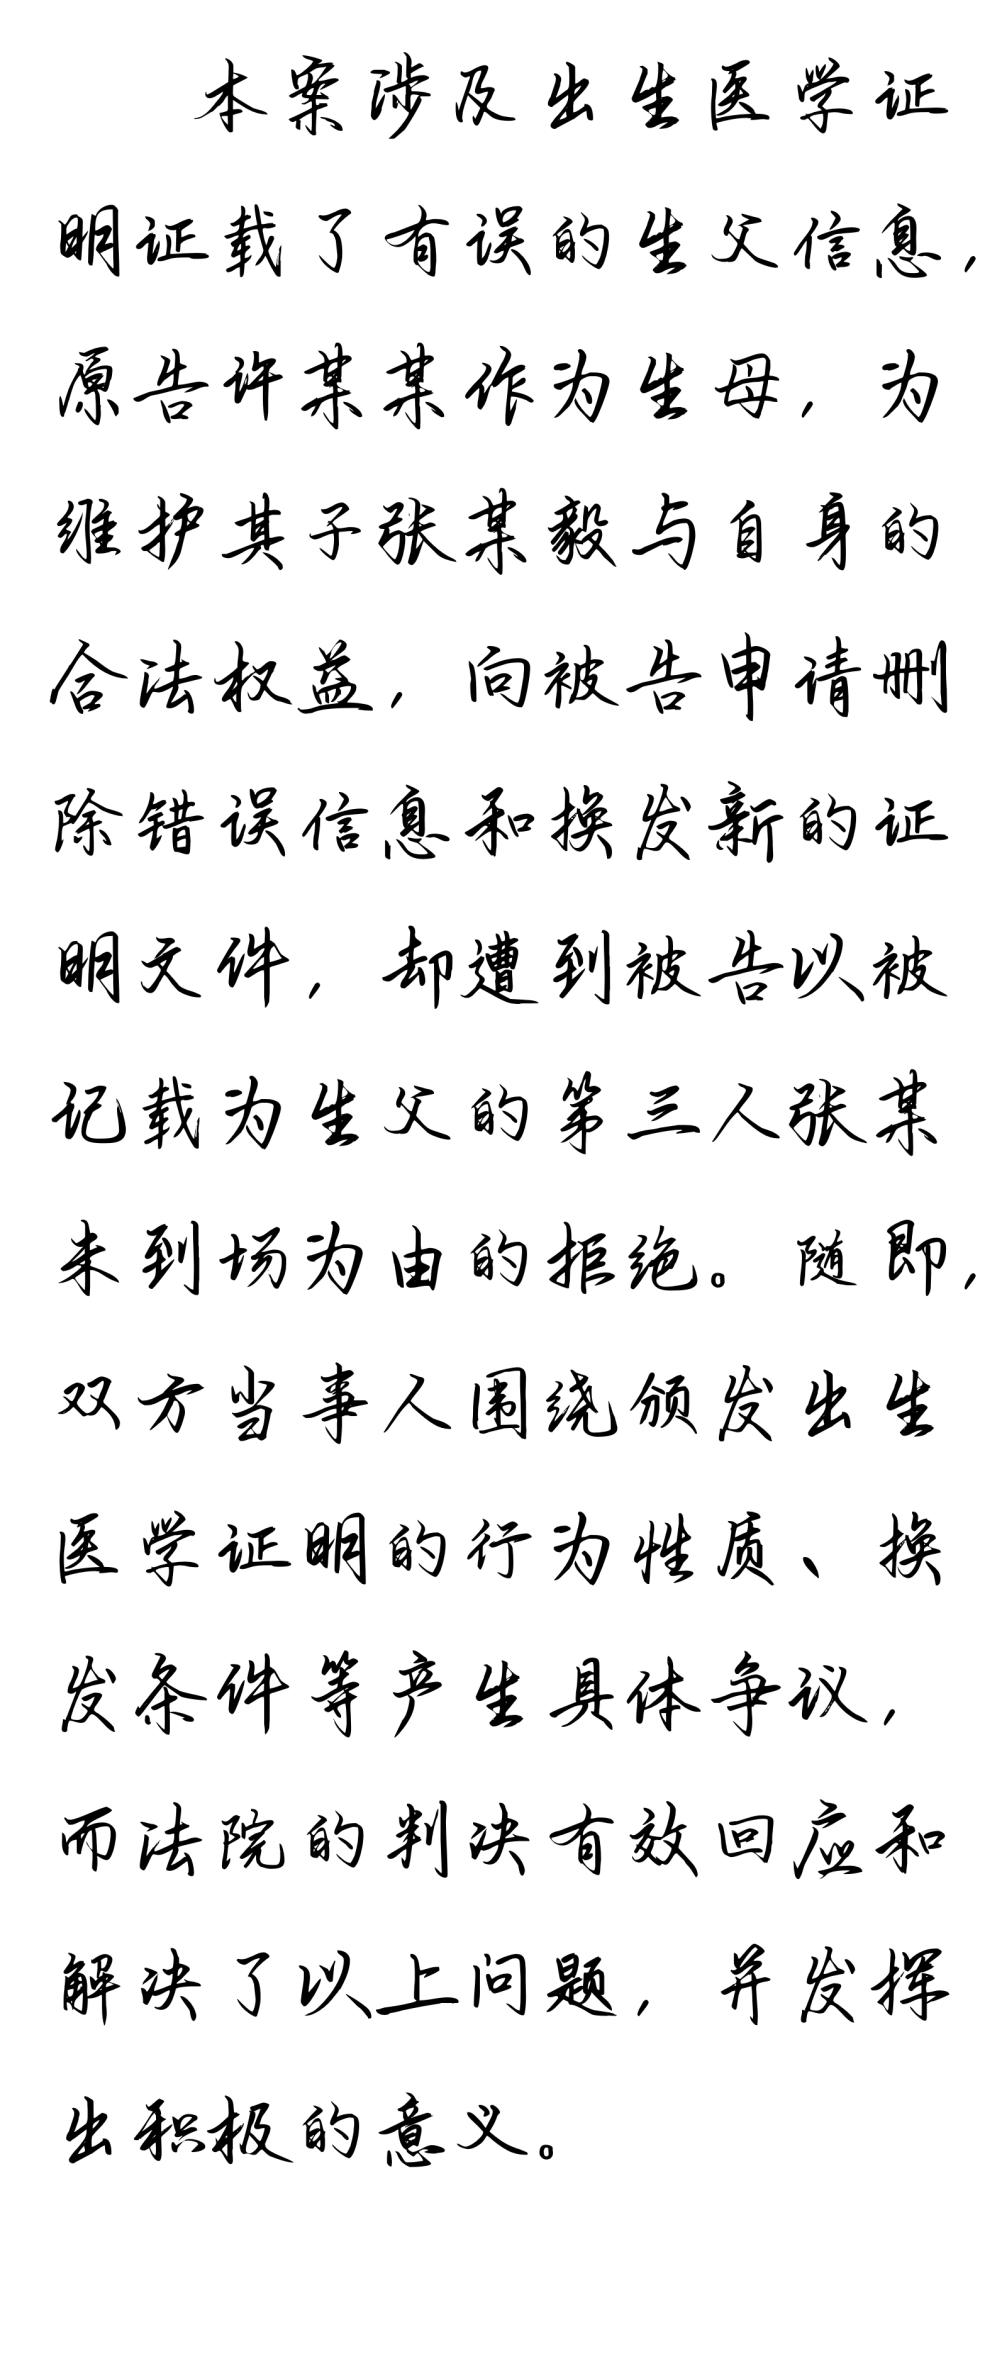 本案涉及出生医学证
明证载了有误的生父信息，
原告许某某作为生母，为
维护其子张某毅与自身的
合法权益，向被告申请删
除错误信息和换发新的证
明文件，却遭到被告以被
记载为生父的第三人张某
未到场为由的拒绝。随即，
双方当事人围绕颁发出生
医学证明的行为性质、换
发条件等产生具体争议，
而法院的判决有效回应和
解决了以上问题，并发挥
出积极的意义。